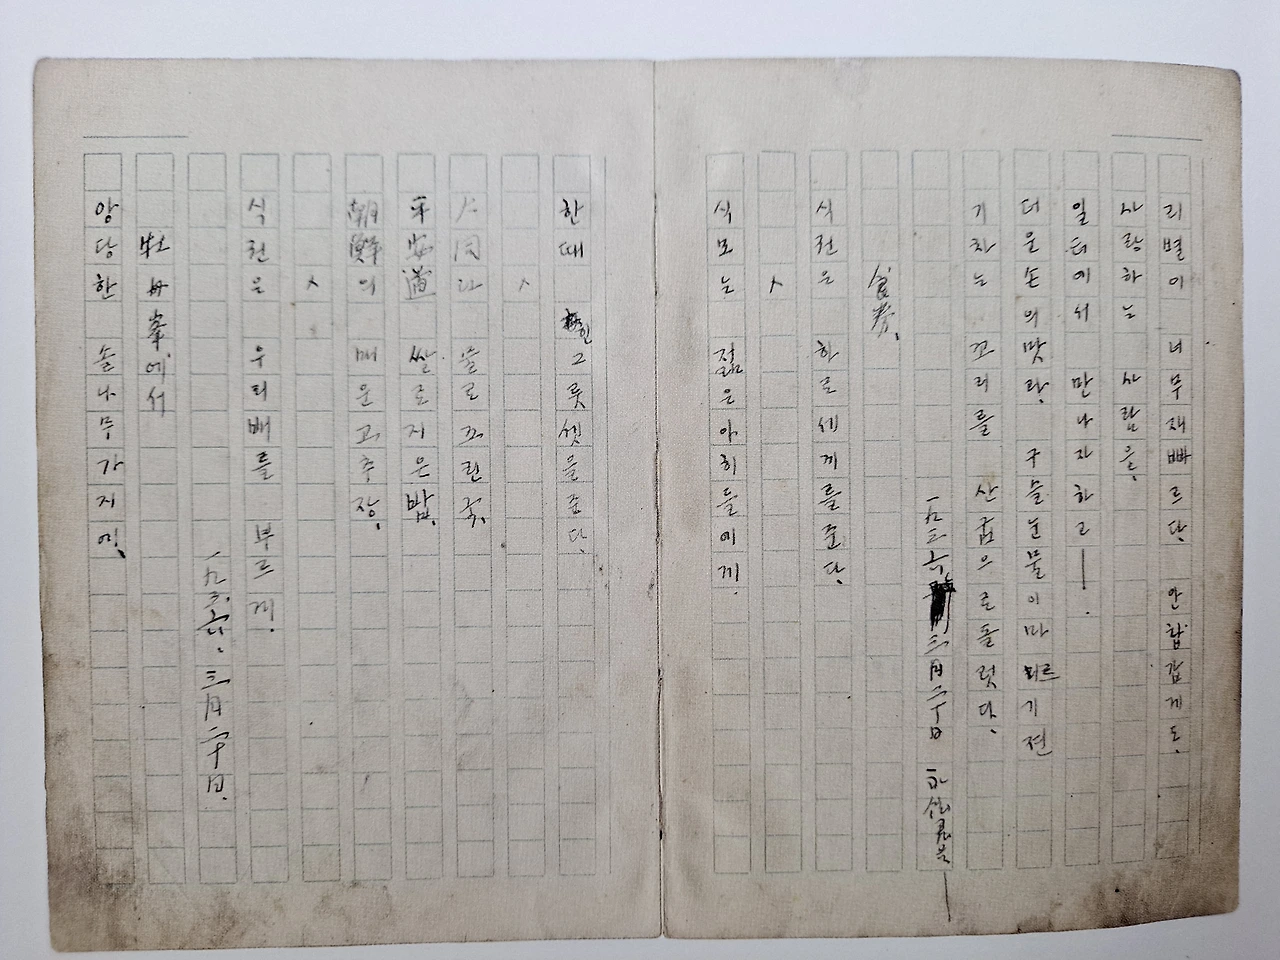 리별이 너무재빠르다. 안탑갑게도.
사랑하는 사람을,
일터에서 만나자하고ㅡ.
더운손의맛과, 구슬눈물이마르기전
기차는 꼬리를 산굽으로돌렷다.
一九三六 三月二〇日
食券,
식권은 하로세끼를준다,
ㅅ
식모는 젊은아히들에게.
한때 힌그릇셋을준다,
ㅅ
大同江 물로끄린국,
平安道 쌀로지은밥,
朝鮮의 매운고추장,
ㅅ
식권은 우리배를 부르게.
一九三六. 三月二十日.
牡丹峯에서
앙당한 솔나무가지에,